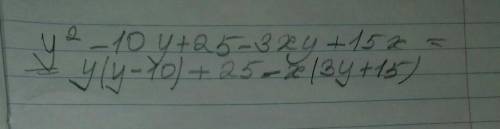 y² - 10y + 25 - 3xy + 15x =
= y(y - 10) + 25 - x(3y + 15)